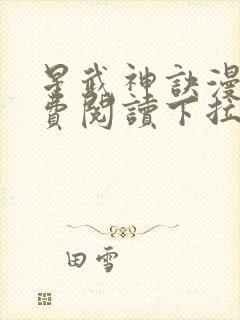 星武神訣漫
費閱讀下拉
田雪